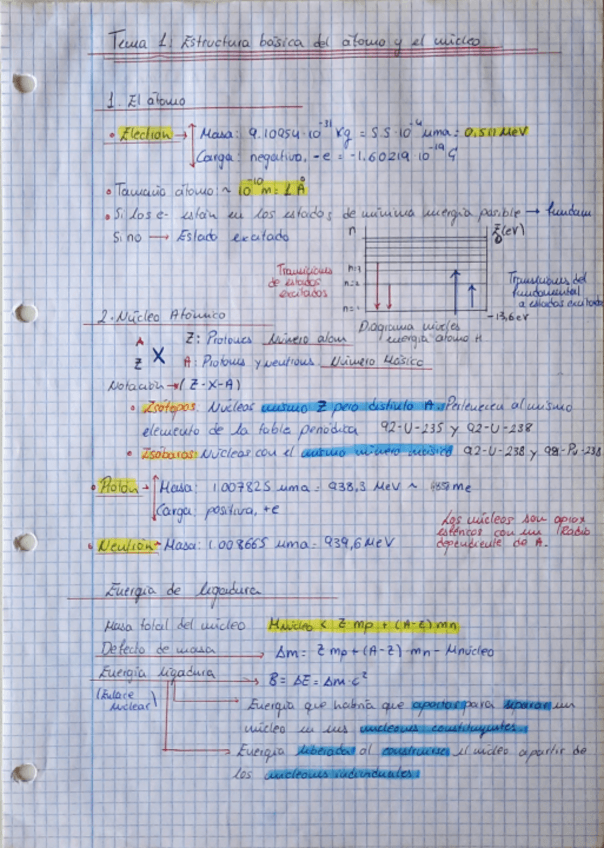 Tema 1: Estructura básica del átomo y el núcleo
1. El átomo
• Electrón → Masa: 9.10954·10^-31 Kg = 5.5·10^-4 uma = 0.511 MeV
Carga: negativa, -e = -1.60219 10^-19 C
• Tamaño átomo: ~ 10^-10 m = 1 Å
• Si los e- están en los estados de mínima energía posible → fundam
Si no → Estado excitado
n E(eV)
0
Transiciones de estados excitados
n=3
n=2
n=1
Transiciones del fundamental a estados excitados
-13,6 eV
Diagrama niveles energía átomo H
2. Núcleo Atómico
A Z: Protones Número atom
X
Z A: Protones y neutrones Número Másico
Notación → (Z-X-A)
• Isótopos: Núcleos mismo Z pero distinto A. Pertenecen al mismo
elemento de la tabla periódica 92-U-235 y 92-U-238
• Isóbaros: Núcleos con el mismo número másico 92-U-238 y 98-Pu-238
• Protón → Masa: 1.007825 uma = 938,3 MeV ~ me
Carga positiva, +e
Los núcleos son aprox
esféricos con un (Radio
dependiente de A.
• Neutrón → Masa: 1.008665 uma = 939,6 MeV
Energía de ligadura
Masa total del núcleo Mnúcleo < Z mp + (A-Z) mn
Defecto de masa → Δm = Z mp + (A-Z)·mn - Mnúcleo
Energía ligadura → B = ΔE = Δm·c²
(Enlace nuclear)
Energía que habría que aportar para separar un
núcleo en sus nucleones constituyentes.
Energía liberada al construirse el núcleo a partir de
los nucleones individuales.